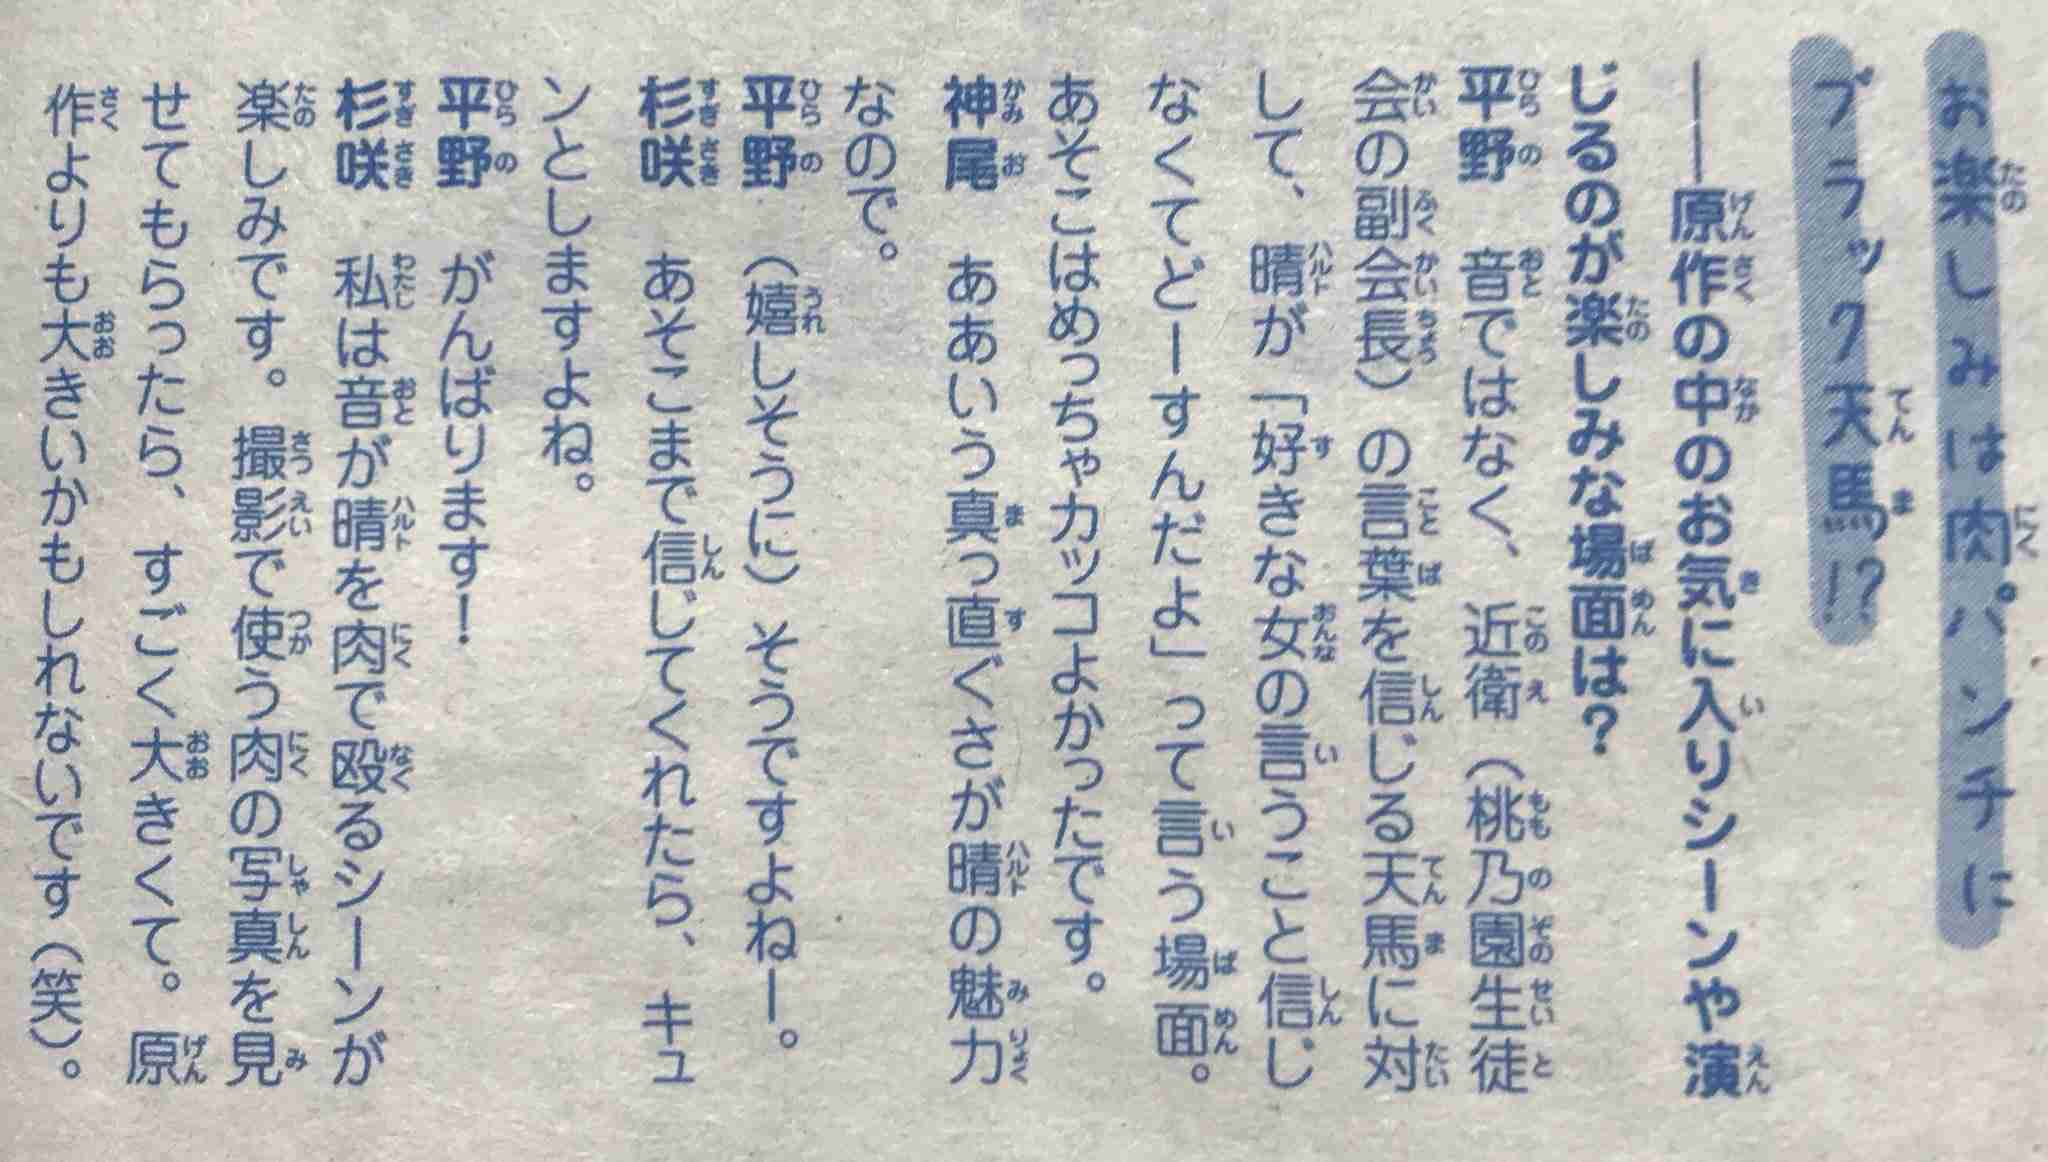 お楽しみは肉パンチに
ブラック天馬!?
――原作の中のお気に入りシーンや演
じるのが楽しみな場面は?
平野　音ではなく、近衛（桃乃園生徒
会の副会長）の言葉を信じる天馬に対
して、晴が「好きな女の言うこと信じ
なくてどーすんだよ」って言う場面。
あそこはめっちゃカッコよかったです。
神尾　ああいう真っ直ぐさが晴の魅力
なので。
平野　（嬉しそうに）そうですよねー。
杉咲　あそこまで信じてくれたら、キュ
ンとしますよね。
平野　がんばります！
杉咲　私は音が晴を肉で殴るシーンが
楽しみです。撮影で使う肉の写真を見
せてもらったら、すごく大きくて。原
作よりも大きいかもしれないです（笑）。